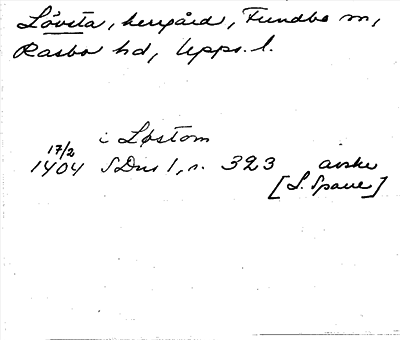 Lövsta, herrgård, Funbo sn,
Rasbo hd, Upps. l.
i Løstom
17/2
1404 SDns 1, s. 323 avskr
[S. Spane]